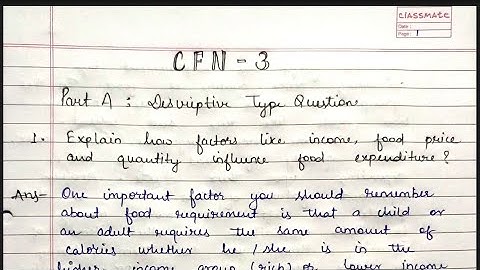 classmate
Date :
Page : 1
CFN - 3
Part A : Descriptive Type Question
1. Explain how factors like income, food price
and quantity influence food expenditure?
Ans- One important factor you should remember
about food requirement is that a child or
an adult requires the same amount of
calories whether he / she is in the
higher income group (rich) or lower income